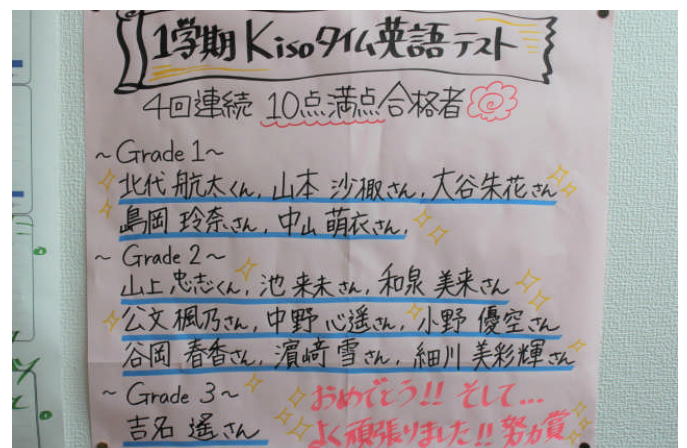 1学期Kisoタイム英語テスト
4回連続 10点満点合格者
~Grade 1~
北代 航太くん, 山本 沙椒さん, 大谷朱花さん
島岡 玲奈さん, 中山 萌衣さん,
~ Grade 2~
山上 忠志くん, 池 来未さん, 和泉 美来さん
公文 楓乃さん, 中野 心遥さん, 小野 優空さん
谷岡 春香さん, 濵﨑 雪さん, 細川 美彩輝さん
~ Grade 3~
吉名 遙さん
おめでとう!! そして...
よく頑張りました!! 努力賞